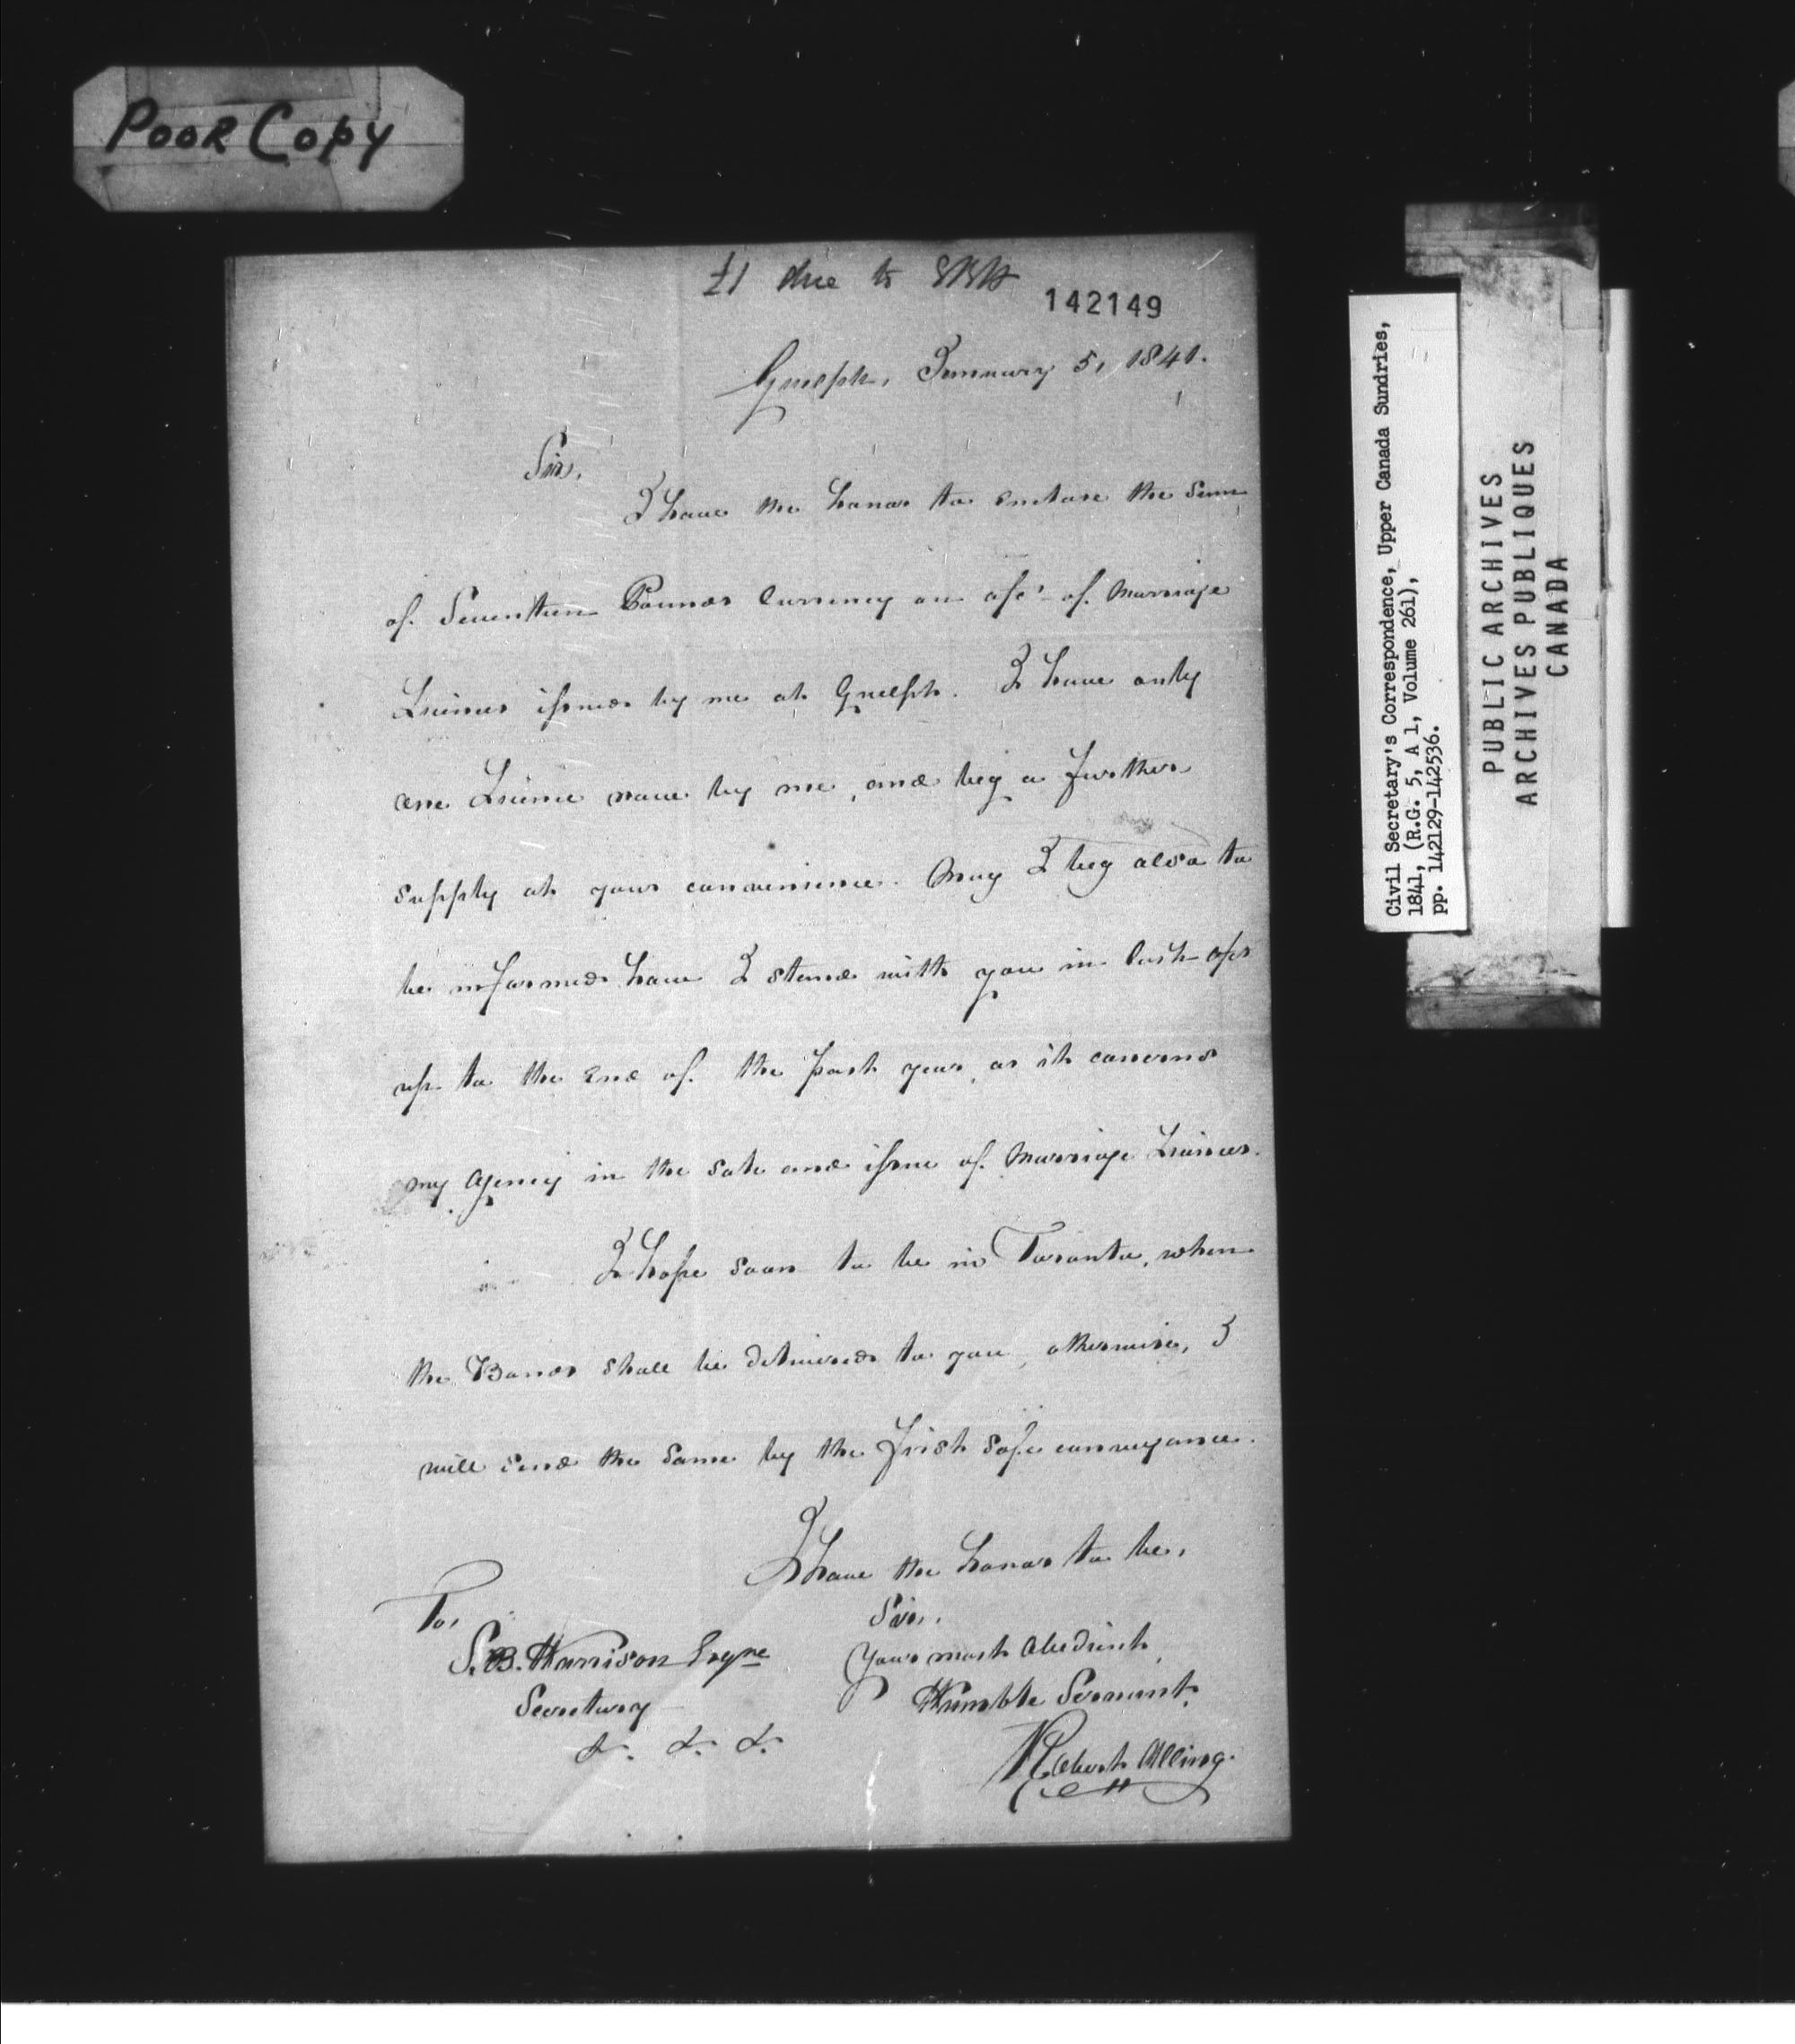 POOR COPY
£1 due to SBH
142149
Guelph, January 5, 1841.
Sir,
I have the honor to enclose the Sum
of Seventeen Pounds Currency on a/c of Marriage
Licenses issued by me at Guelph. I have only
one License now by me, and beg a further
supply at your convenience. May I beg also to
be informed how I stand with you in Cash a/cs
up to the End of the past year, as it concerns
my Agency in the Sale and issue of Marriage Licenses.
I hope soon to be in Toronto, when
the Bonds shall be delivered to you, otherwise, I
will send the same by the first safe conveyance.
I have the honor to be,
Sir,
Your most Obedient,
Humble Servant,
Robert Alling.
To,
S. B. Harrison Esqre
Secretary
&. &. &.
Civil Secretary's Correspondence, Upper Canada Sundries,
1841, (R.G. 5, A 1, Volume 261),
pp. 142129-142536.
PUBLIC ARCHIVES
ARCHIVES PUBLIQUES
CANADA